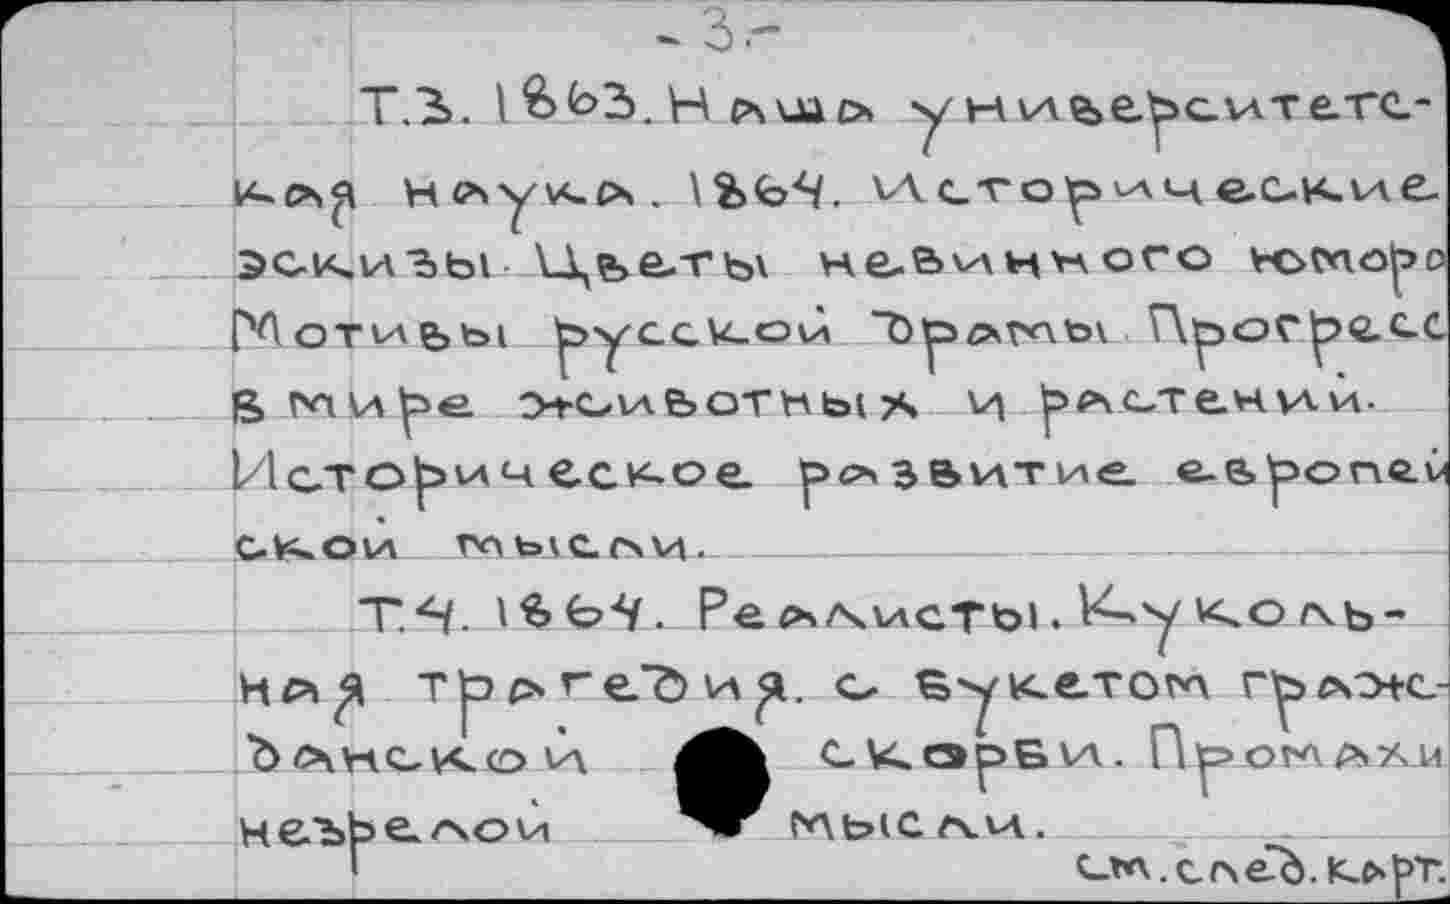 - 3.-
Т.3. 1863. Наша университетс-
кая наука. 1864. Исторические
эскизы Цветы невинного юмора
Мотивы русской драмы Прогресс
в мире животных и растений.
Историческое развитие европей
ской мысли.
Т.4. 1864. Реалисты. Куколь-
ная трагедия. с букетом граж-
данской скорби. Промахи
незрелой мысли.
см. след. карт.